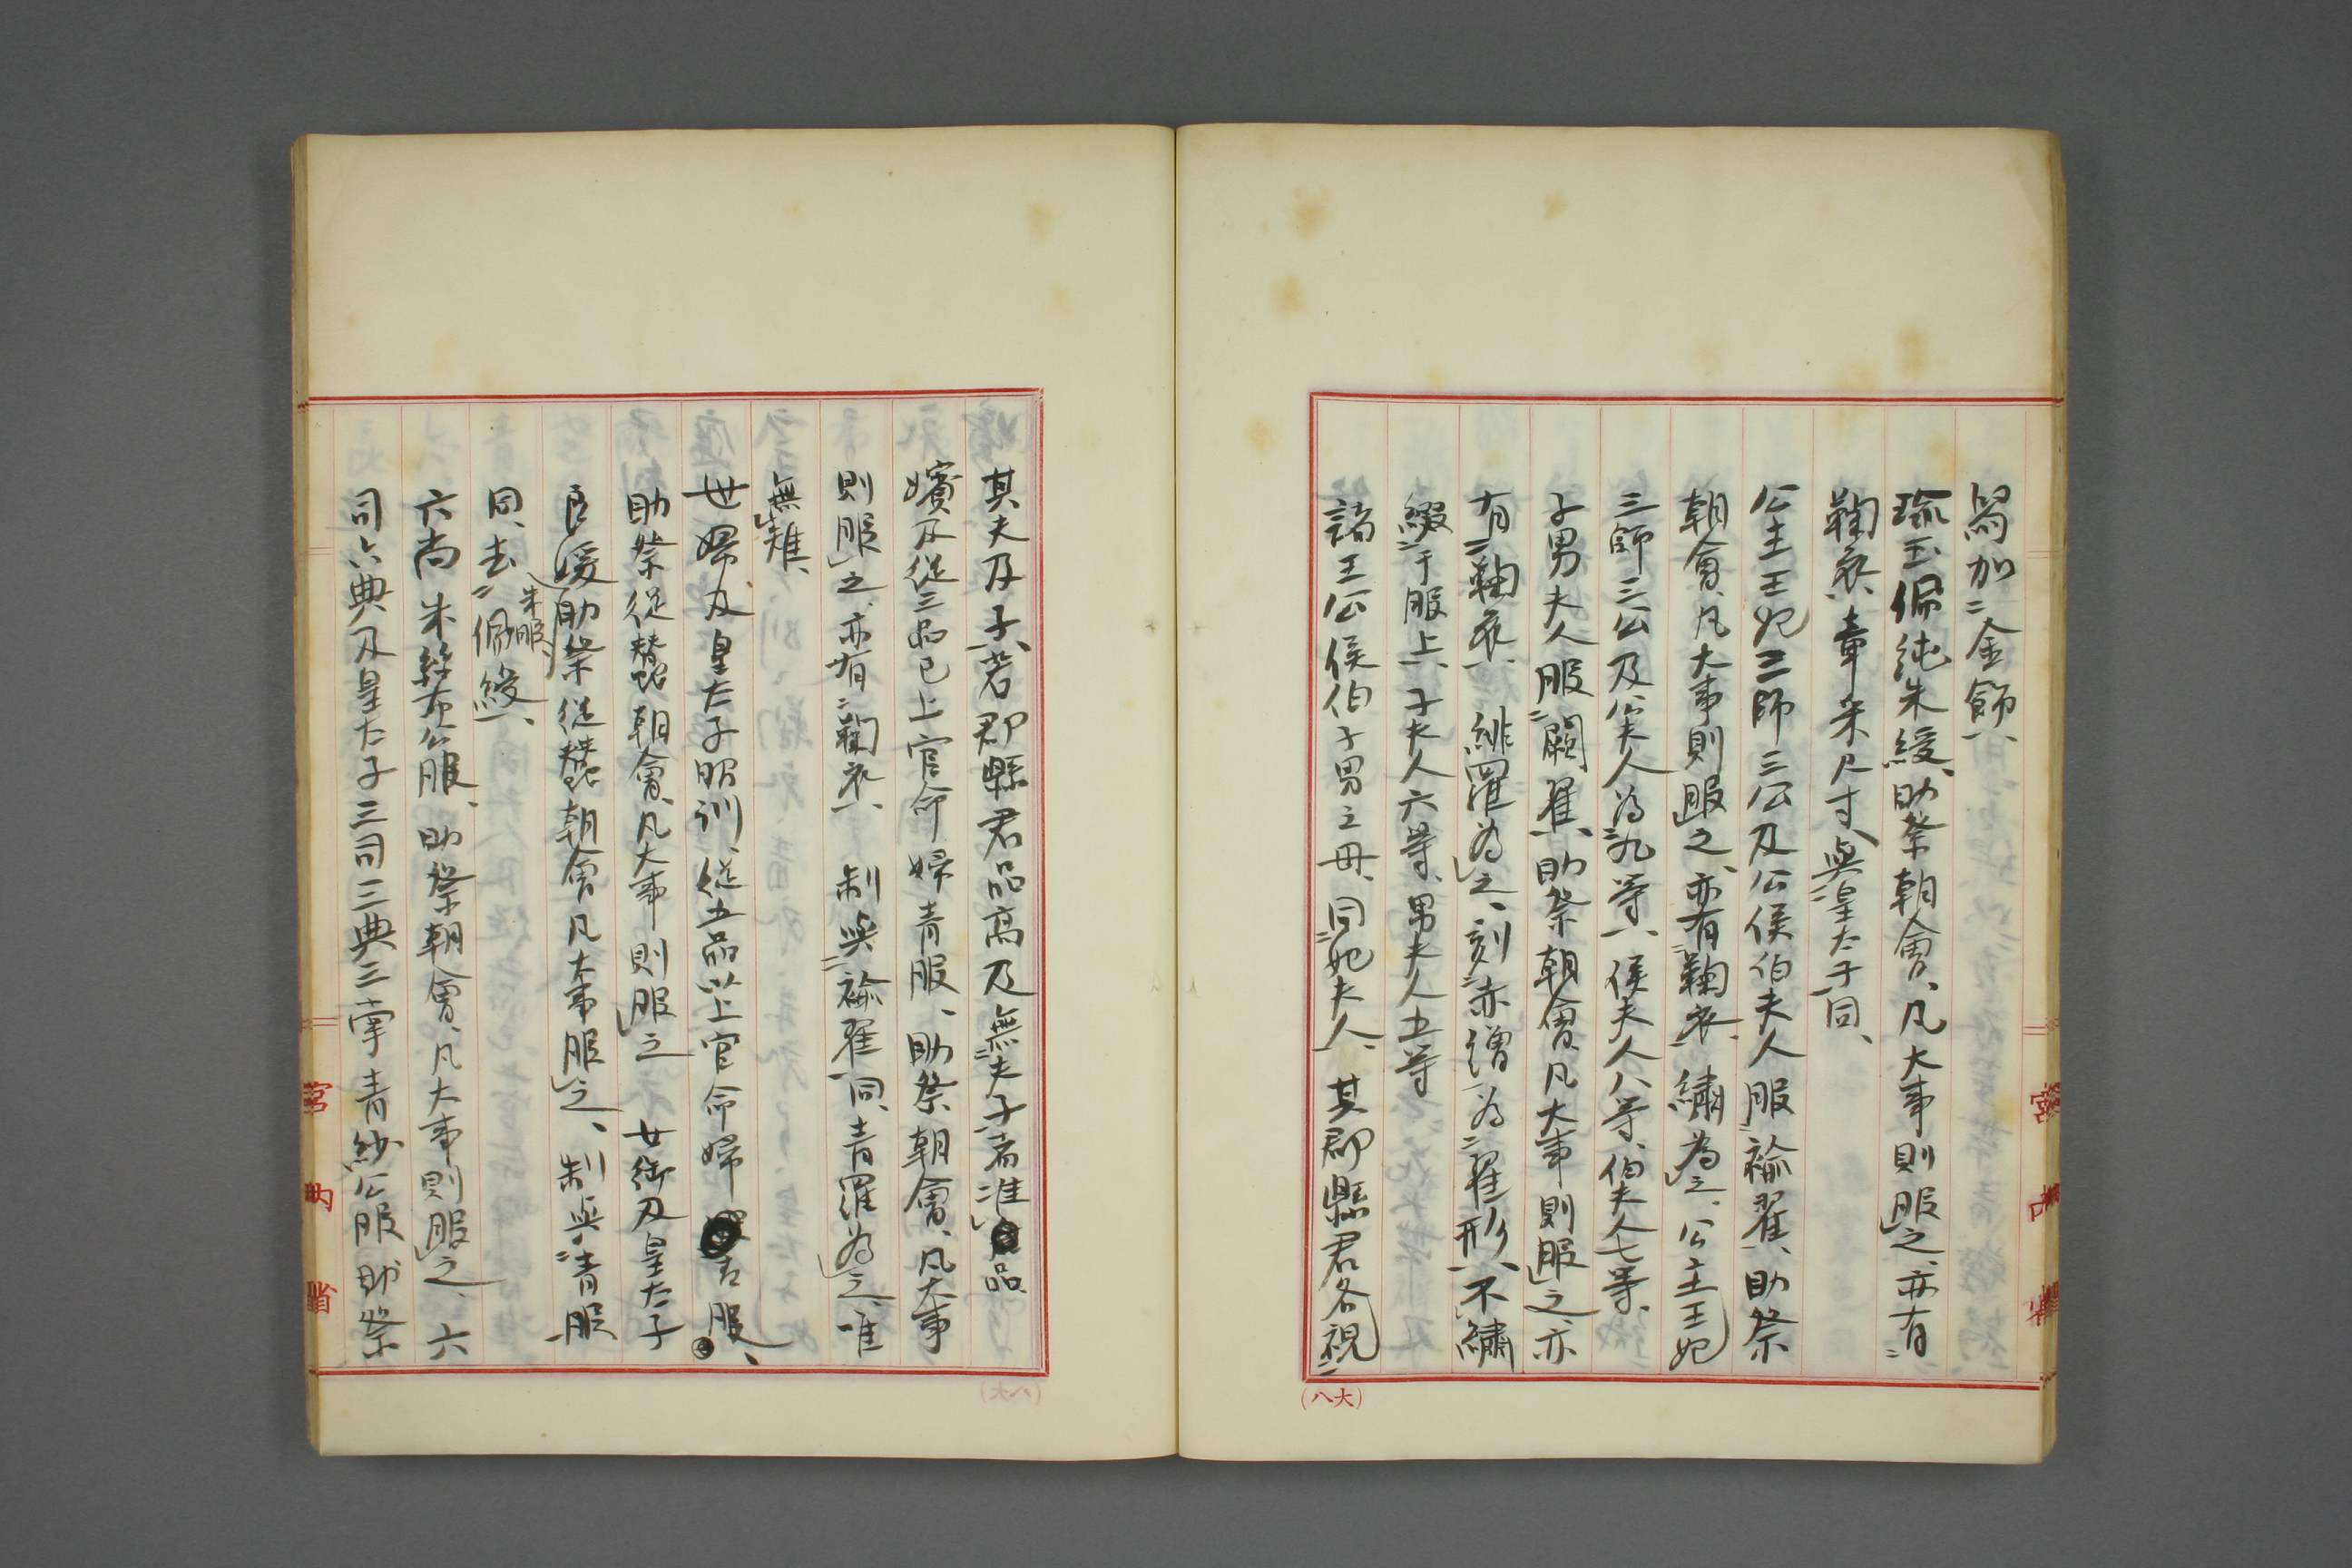 舄加二金飾一、
瑜玉佩純朱綬、助祭朝會、凡大事則服レ之、亦有二
鞠衣一、章采尺寸、與二皇太子一同、
公主王妃三師三公及公侯伯夫人服二褕翟一、助祭
朝會、凡大事則服レ之、亦有二鞠衣一、繡為レ之、公主王妃
三師三公及公夫人為二九等一、侯夫人八等、伯夫人七等、
子男夫人服二闕翟一、助祭朝會、凡大事則服レ之、亦
有二鞠衣一、緋羅為レ之、刻二赤繒一為二翟形一、不レ繡
綴二于服上一、子夫人六等、男夫人五等
諸王公侯伯子男之母、同二妃夫人一、其郡縣君各視二
其夫及子、若郡縣君品高及無二夫子一者准レ品
嬪及從三品已上官命婦青服、助祭朝會、凡大事
則服レ之、亦有二鞠衣一、制與二褕翟一同、青羅為レ之、唯
無レ雉、
世婦及皇太子昭訓、從五品以上官命婦青服、
助祭從蠶朝會、凡大事則服レ之 女御及皇太子
良媛朱服、助祭從蠶朝會凡大事服レ之、制與二青服一
同、去二佩綬一、
六尚朱絲布公服、助祭朝會、凡大事則服レ之、六
司六典及皇太子三司三典三掌青紗公服助祭
宮內省
宮內省
(八大)